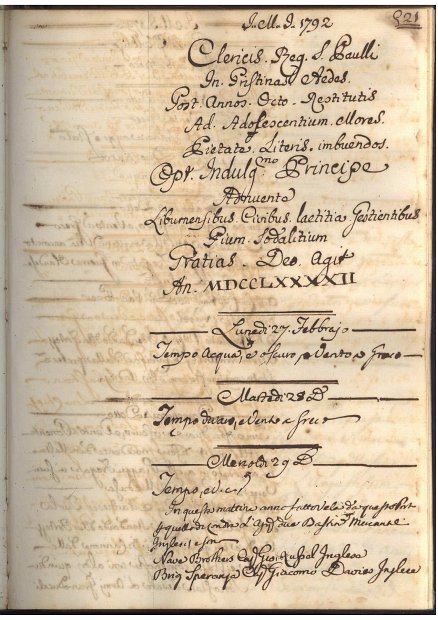 521
1792
Clericis. Reg. S. Paulli
In. Pristinas Aedes.
Post. Annos. Octo. Restitutis
Ad. Adolescentium. Mores.
Pietate. Literis. imbuendos.
Opt. Indulg.mo Principe
Adnuente
Liburnensibus Civibus. laetitia Gestientibus
Pium. Sodalitium
Gratias. Deo. Agit
An. MDCCLXXXXII
Lunedì 27. Febbrajo
Tempo Acqua, e oscuro, e Vento a Greco
Martedì 28 D
Tempo e Vento a Greco
Mercoldì 29 D
Tempo,
In questa mattina anno fatto Vela da questo Port
p quello di due Bastim.ti Mercanti
Inglesi, e son
Nave Brothers Cap Inglese
Brig Speranza Cap Giacomo Davies Inglese